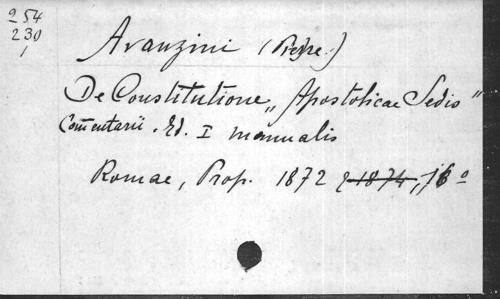 254
230
1
Avanzini (Pietre.)
De Constitutione „Apostolicae Sedis"
Com̃entarii. Ed. I manualis
Romae, Prop. 1872 & 1874, 16°